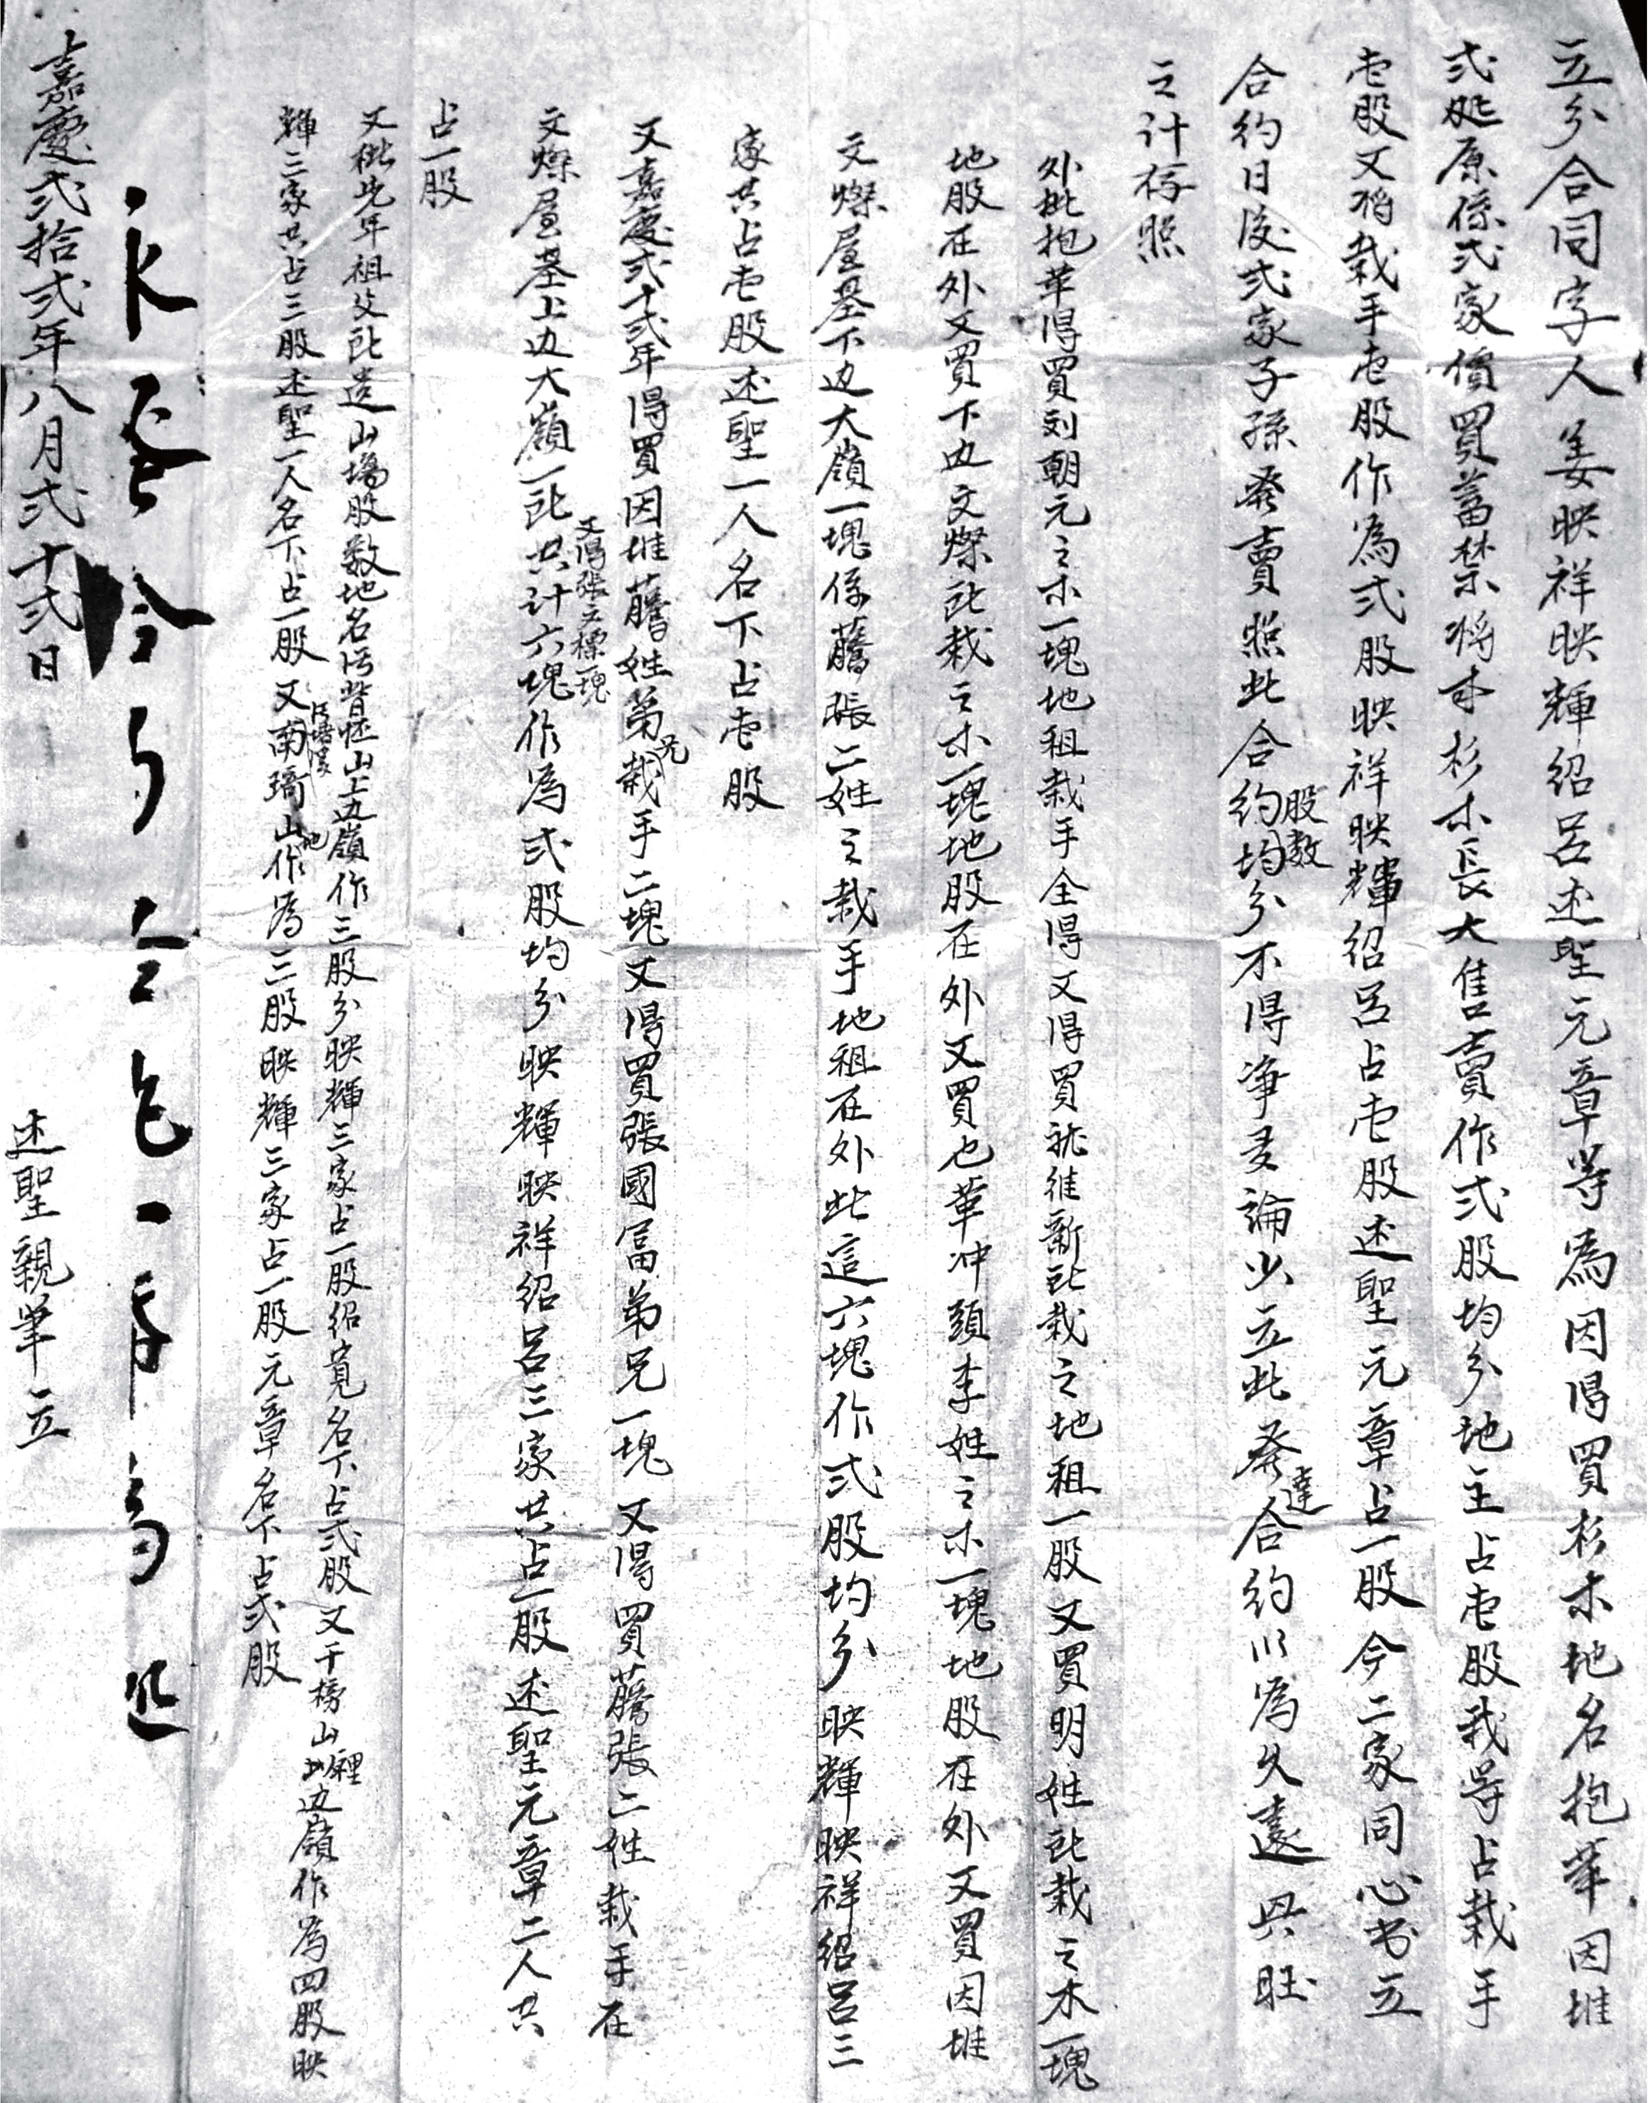 立分合同字人姜映祥映輝紹呂述聖元章等為因得買杉木地名抱華因堆
弍処原係弍家價買蓄禁將本杉木長大售賣作弍股均分地主占壱股栽等占栽手
壱股又將栽手壱股作為弍股映祥映輝紹呂占壱股述聖元章占一股今二家同心书立
合約日後弍家子孫発賣照此合約股数均分不得爭多論少立此発達合約以為久遠興旺
之计存照
外批抱革得買刘朝元之木一塊地租栽手全得又得買龍維新所栽之地租一股又買明姓所栽之木一塊
地股在外又買下边文燦所栽之木一塊地股在外又買也革冲頭李姓之木一塊地股在外又買因堆
文燦屋基下边大嶺一塊係藤張二姓之栽手地租在外此這六塊作弍股均分映輝映祥紹呂三
家共占壱股述聖一人名下占壱股
又嘉慶弍十弍年得買因堆藤姓弟兄栽手二塊又得買張國富弟兄一塊又得買藤張二姓栽手在
又得張文標一塊
文燦屋基上边大嶺一所共计六塊作為弍股均分映輝映祥紹呂三家共占一股述聖元章二人共
占一股
又批先年祖父所造山場股数地名污背怌山上边嶺作三股分映輝三家占一股紹寬名下占弍股又干榜山裡边嶺作為四股映
輝三家共占三股述聖一人名下占一股又南琦山地作為三股映輝三家占一股元章名下占弍股
嘉慶弍拾弍年八月弍十弍日
述聖親筆立